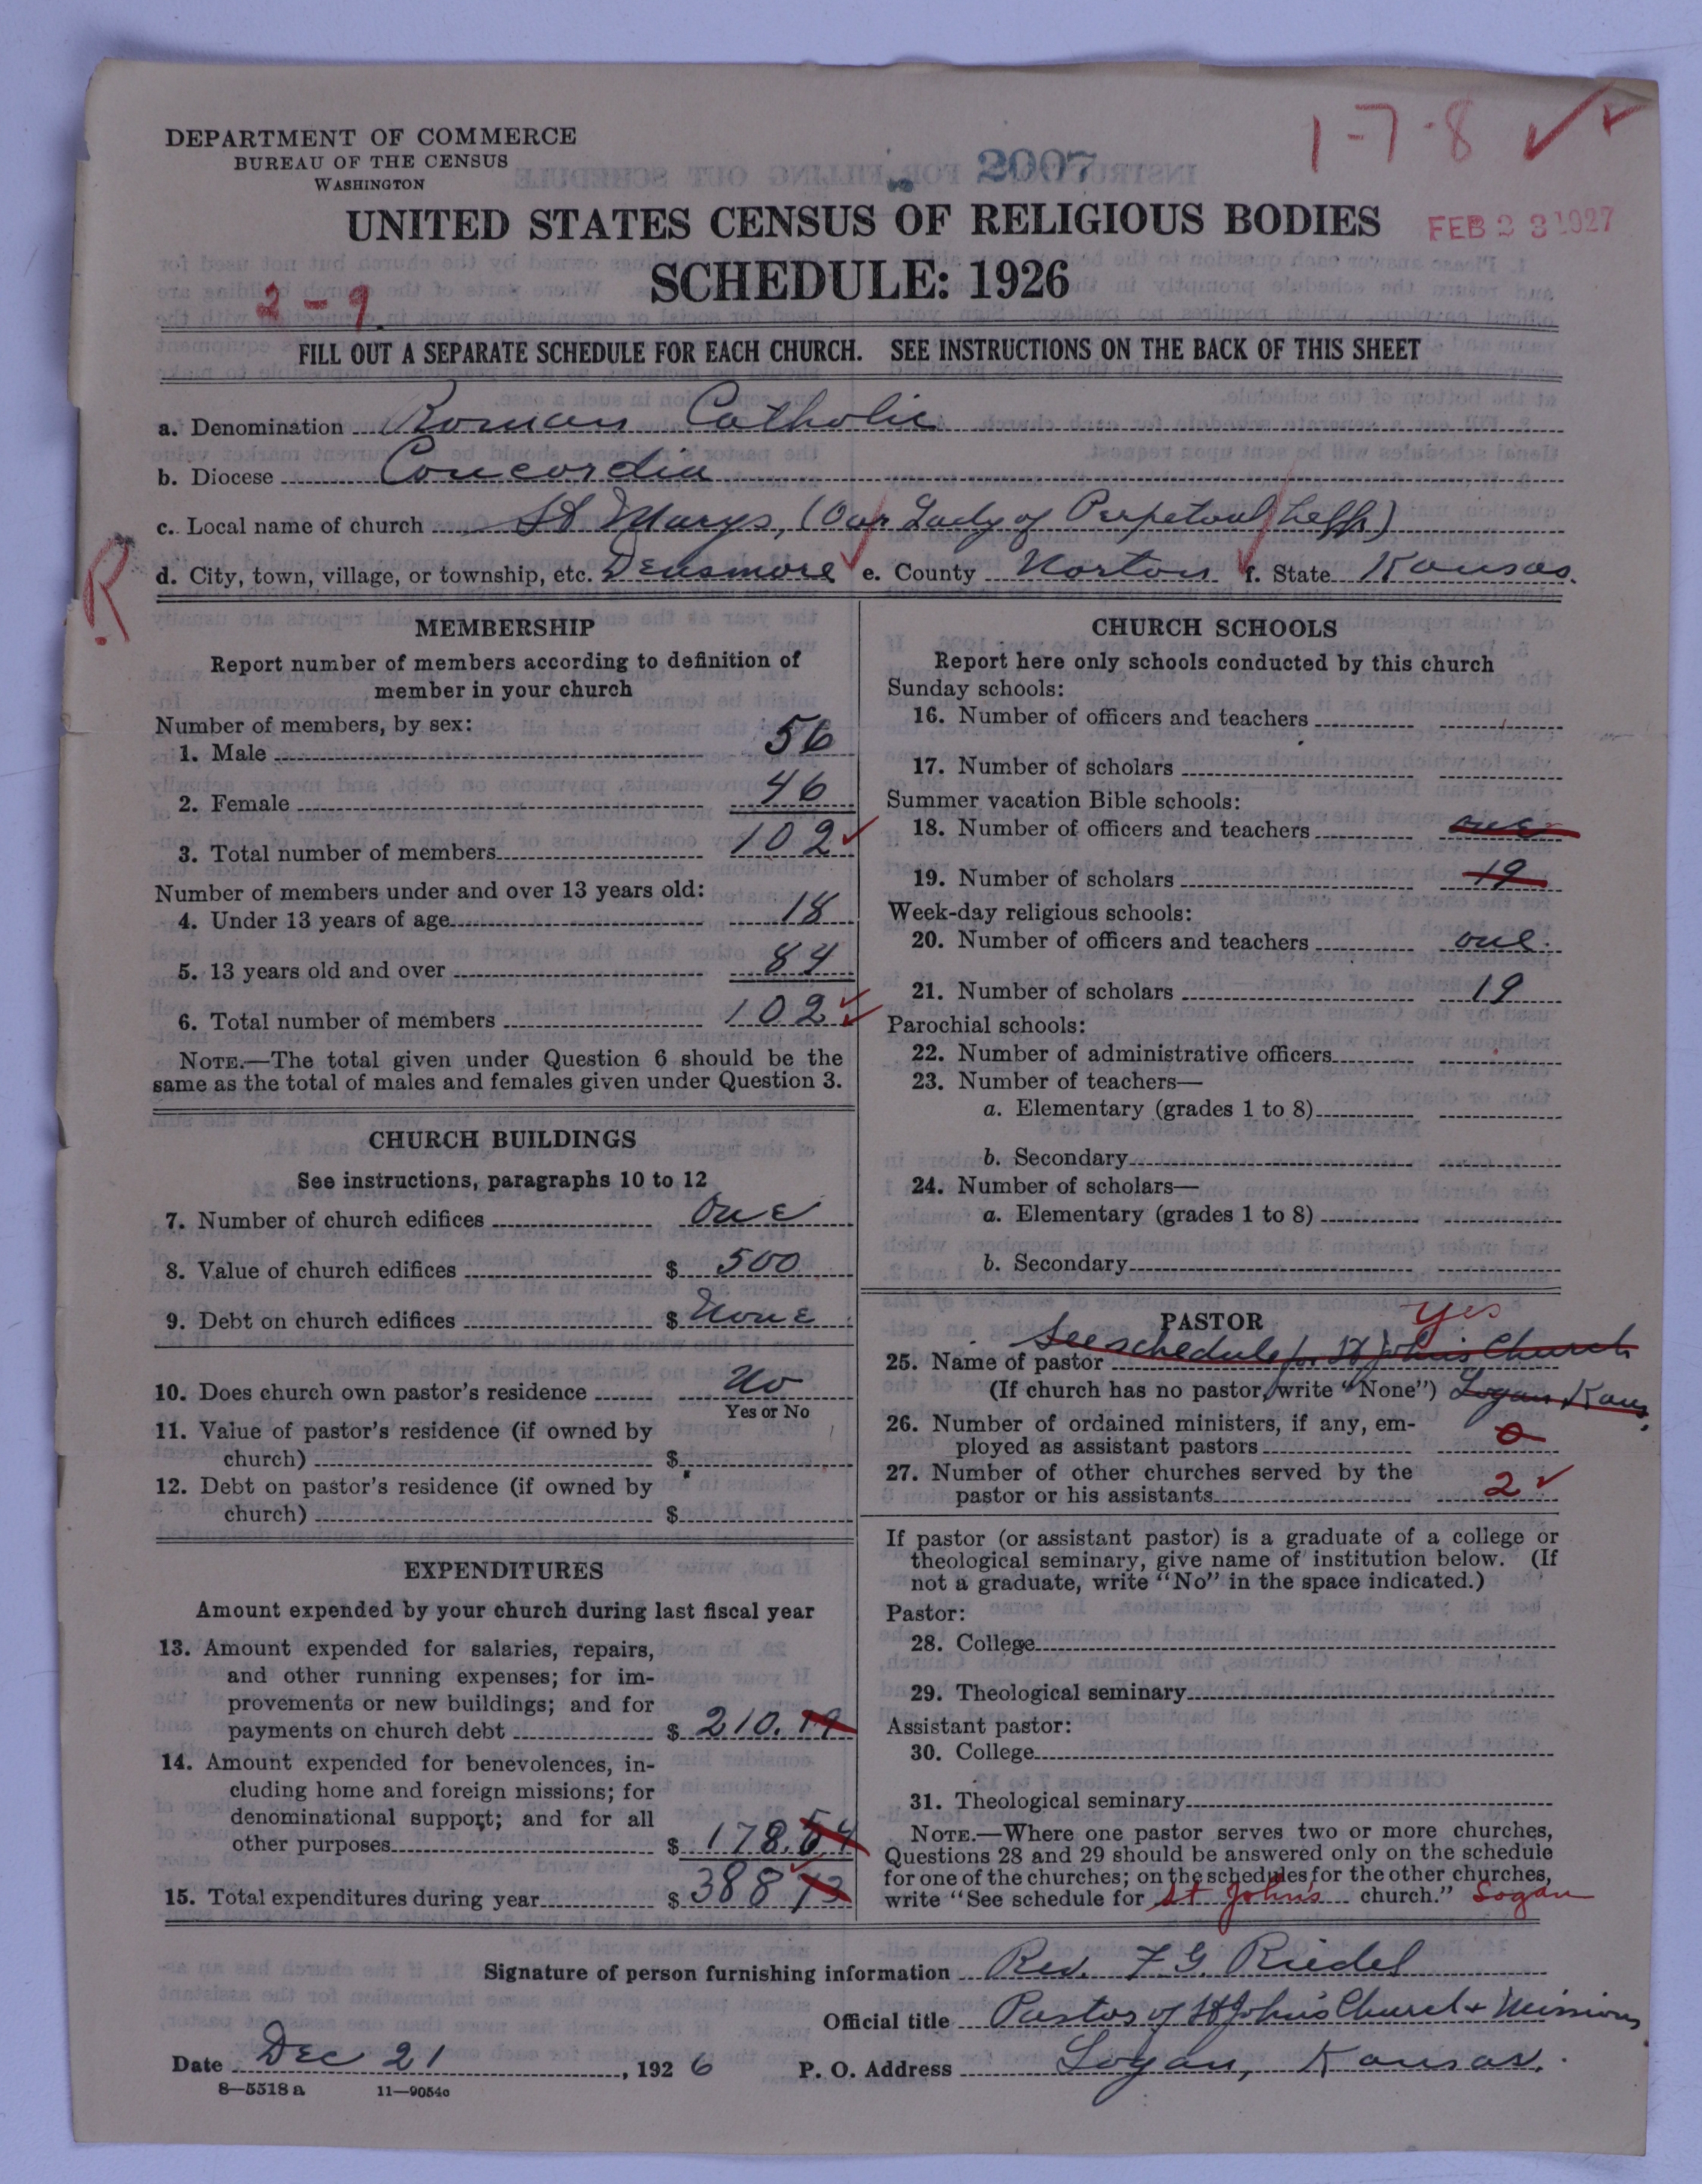 1-7-8
DEPARTMENT OF COMMERCE
BUREAU OF THE CENSUS
WASHINGTON
2007
UNITED STATES CENSUS OF RELIGIOUS BODIES
FEB 23 1927
SCHEDULE: 1926
2-9
FILL OUT A SEPARATE SCHEDULE FOR EACH CHURCH. SEE INSTRUCTIONS ON THE BACK OF THIS SHEET
a. Denomination Roman Catholic
b. Diocese Concordia
c. Local name of church St Marys, (Our Lady of Perpetual help)
R
d. City, town, village, or township, etc. Densmore e. County Norton f. State Kansas.
MEMBERSHIP
Report number of members according to definition of
member in your church
Number of members, by sex:
1. Male 56
2. Female 46
3. Total number of members 102
Number of members under and over 13 years old:
4. Under 13 years of age 18
5. 13 years old and over 84
6. Total number of members 102
NOTE.—The total given under Question 6 should be the
same as the total of males and females given under Question 3.
CHURCH BUILDINGS
See instructions, paragraphs 10 to 12
7. Number of church edifices One
8. Value of church edifices $ 500
9. Debt on church edifices $ None
10. Does church own pastor's residence No
Yes or No
11. Value of pastor's residence (if owned by
church) $
12. Debt on pastor's residence (if owned by
church) $
EXPENDITURES
Amount expended by your church during last fiscal year
13. Amount expended for salaries, repairs,
and other running expenses; for im-
provements or new buildings; and for
payments on church debt $ 210.19
14. Amount expended for benevolences, in-
cluding home and foreign missions; for
denominational support; and for all
other purposes $ 178.54
15. Total expenditures during year $ 388 73
CHURCH SCHOOLS
Report here only schools conducted by this church
Sunday schools:
16. Number of officers and teachers
17. Number of scholars
Summer vacation Bible schools:
18. Number of officers and teachers one
19. Number of scholars 19
Week-day religious schools:
20. Number of officers and teachers one.
21. Number of scholars 19
Parochial schools:
22. Number of administrative officers
23. Number of teachers—
a. Elementary (grades 1 to 8)
b. Secondary
24. Number of scholars—
a. Elementary (grades 1 to 8)
b. Secondary
PASTOR yes
25. Name of pastor See schedule for St Johns Church
(If church has no pastor, write "None") Logan Kans.
26. Number of ordained ministers, if any, em-
ployed as assistant pastors 0
27. Number of other churches served by the
pastor or his assistants 2
If pastor (or assistant pastor) is a graduate of a college or
theological seminary, give name of institution below. (If
not a graduate, write "No" in the space indicated.)
Pastor:
28. College
29. Theological seminary
Assistant pastor:
30. College
31. Theological seminary
NOTE.—Where one pastor serves two or more churches,
Questions 28 and 29 should be answered only on the schedule
for one of the churches; on the schedules for the other churches,
write "See schedule for St Johns church." Logan
Signature of person furnishing information Rev. F. G. Riedel
Official title Pastor of St Johns Church & Missions
Date Dec 21, 1926 P. O. Address Logan, Kansas.
8—5518 a 11—9054c